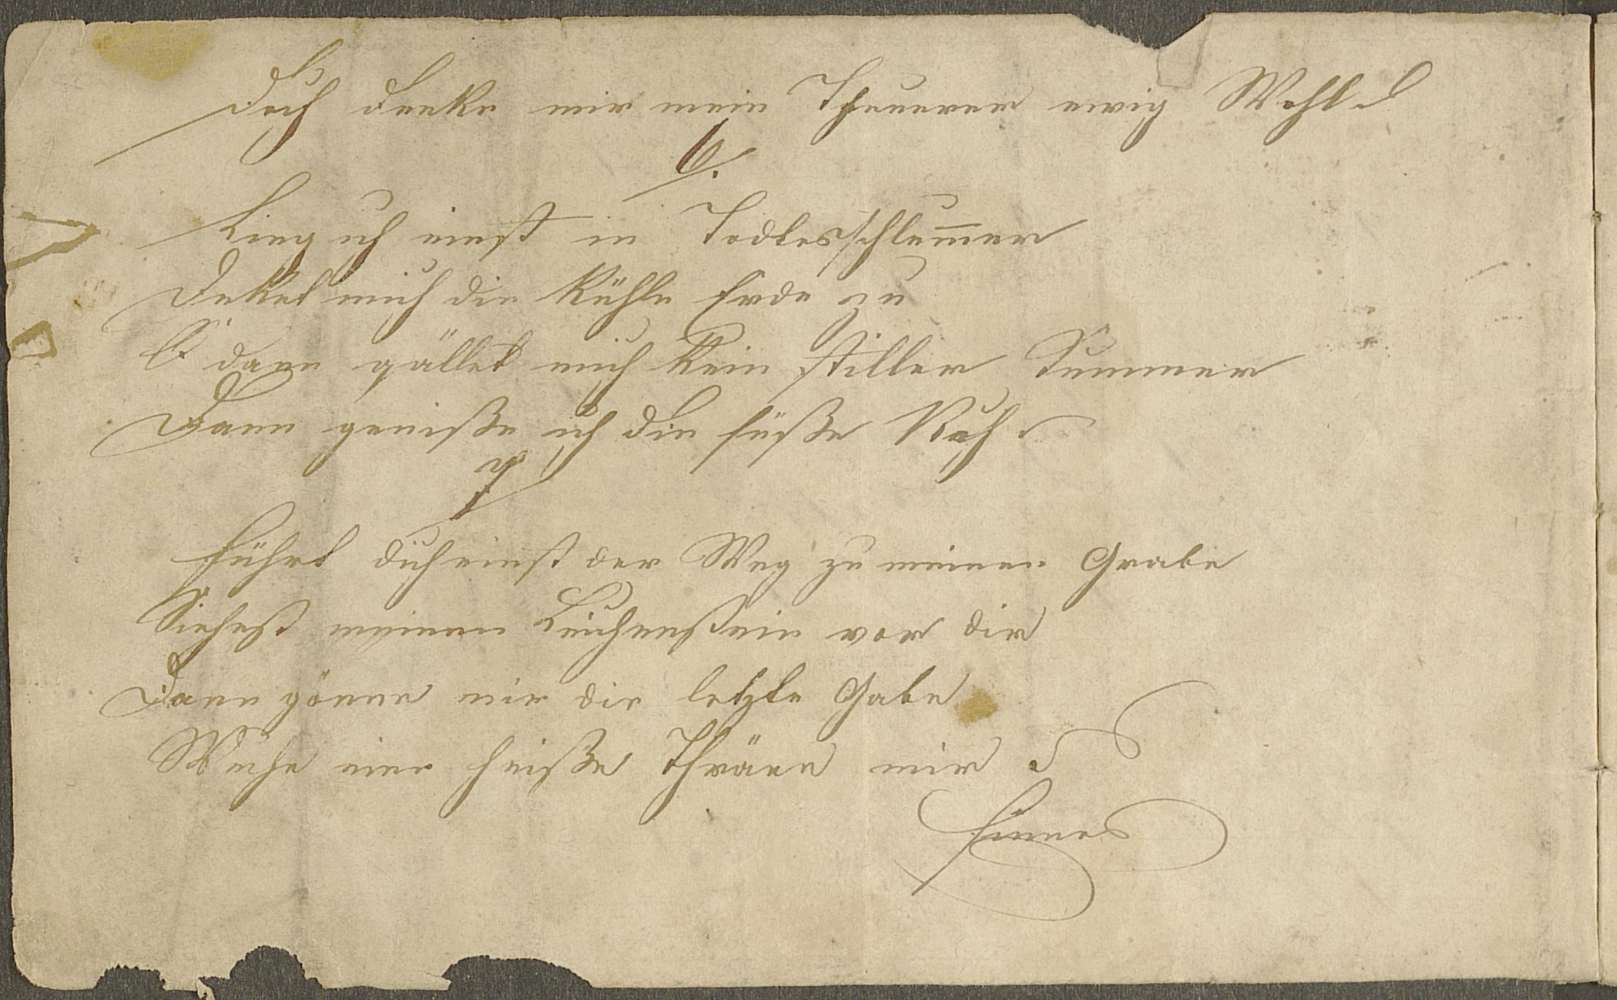 Doch denke mir mein Theuerer ewig Wohl
6.
Lieg ich einst in Todtesschlum̅er
Deket mich die kühle Erde zu
O dann quället mich kein stiller Kummer
Dann genieße ich die süße Ruh
7
Führt dich einst der Weg zu meinen Grabe
Siehest meinen Leichenstein vor dir
Dann gönne mir die letzte Gabe
Weihe eine heiße Thräne mir